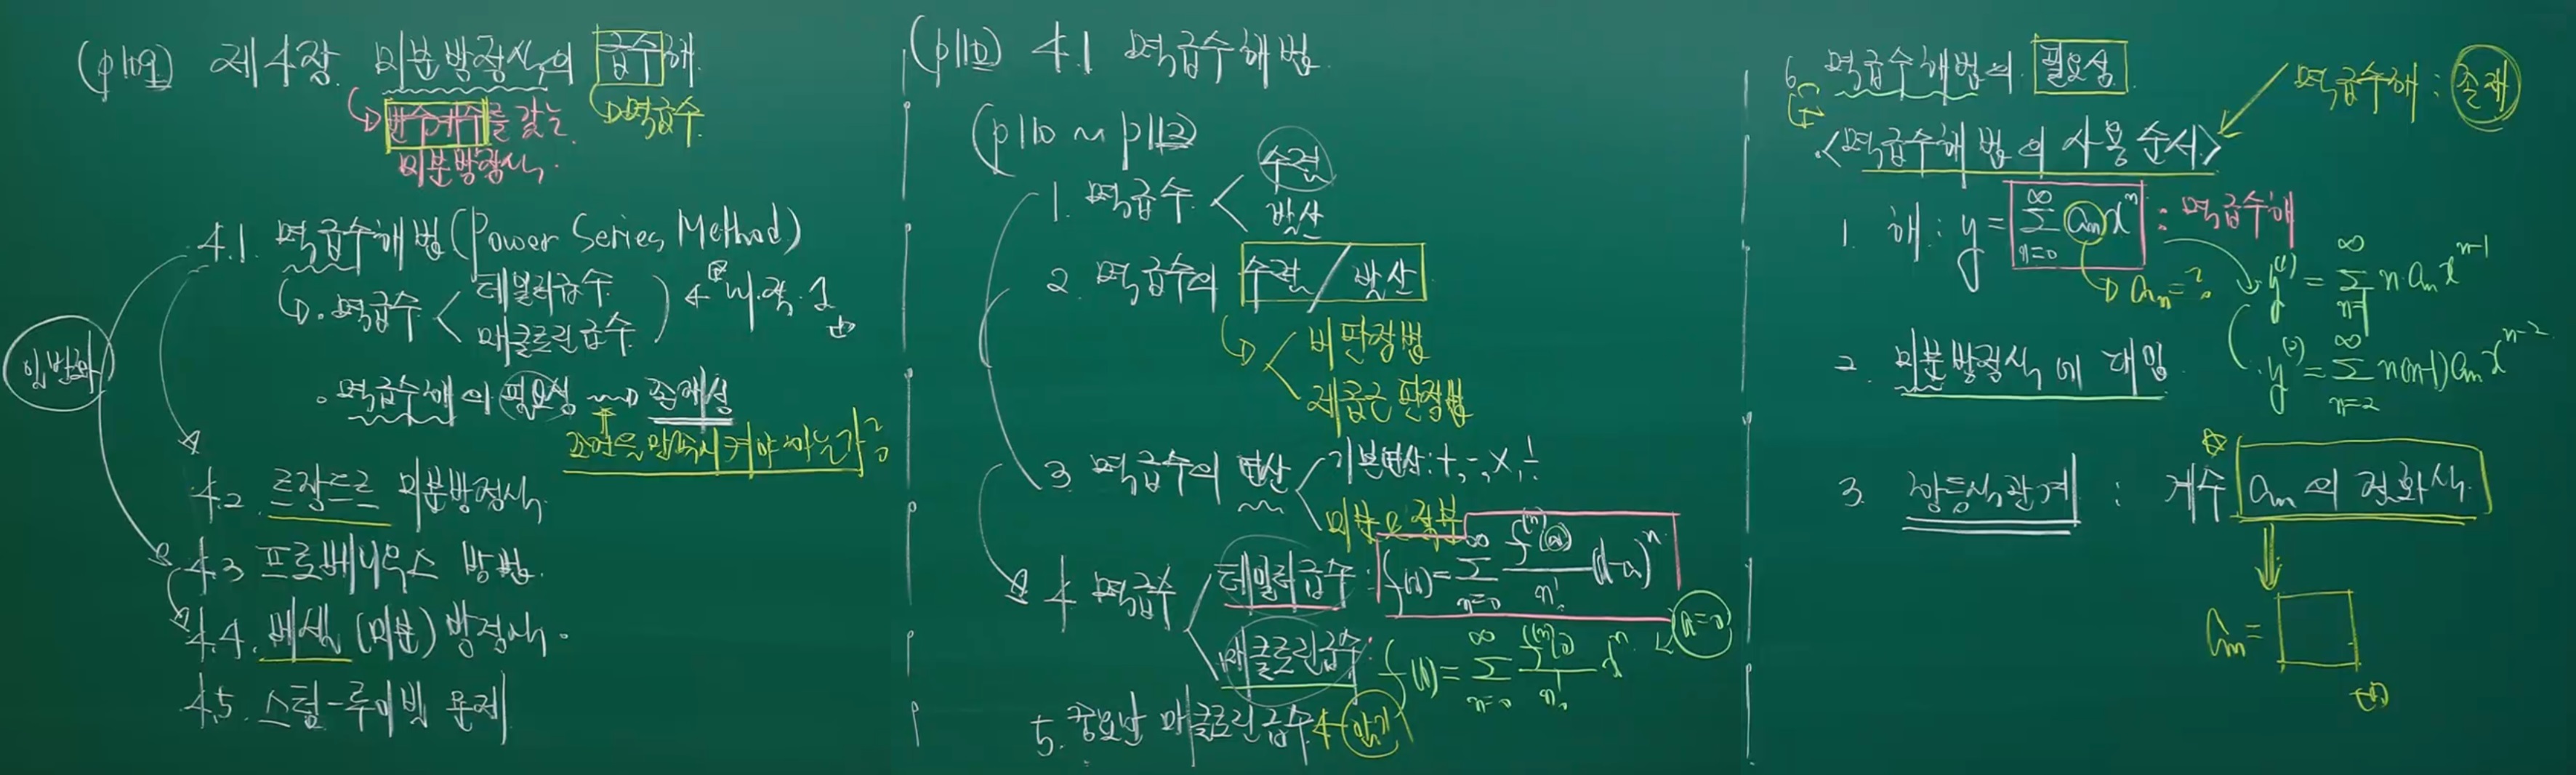 (p109) 제4장. 미분방정식의 급수해.
변수계수를 갖는
미분방정식.
멱급수
4.1. 멱급수해법 (Power Series Method)
· 멱급수 < 테일러급수
매클로린급수
· 멱급수해의 필요성 존재성
조건을 만족시켜야 하는가?
일반화
4.2. 르장드르 미분방정식.
4.3 프로베니우스 방법.
4.4. 베셀 (미분) 방정식.
4.5. 스텀-루이빌 문제
(p110) 4.1 멱급수해법.
(p110 ~ p112)
1. 멱급수 < 수렴
발산
2. 멱급수의 수렴 / 발산
비판정법
제곱근 판정법
3. 멱급수의 연산 < 기본연산: +, -, ×, ÷
미분 & 적분
4 멱급수 < 테일러급수 : f(x) = ∑_{n=0}^{∞} f^{(n)}(a)/n! (x-a)^n
a=0
매클로린급수: f(x) = ∑_{n=0}^{∞} f^{(n)}(0)/n! x^n
5. 중요한 매클로린급수 ← 암기
6. 멱급수해법의 필요성
멱급수해 : 존재
<멱급수해법의 사용순서>
1. 해: y = ∑_{n=0}^{∞} a_n x^n : 멱급수해
a_n = ?
y^{(1)} = ∑_{n=1}^{∞} n·a_n x^{n-1}
y^{(2)} = ∑_{n=2}^{∞} n(n-1)a_n x^{n-2}
2. 미분방정식에 대입
3. 항등식관계 : 계수 a_n의 점화식
a_n = □